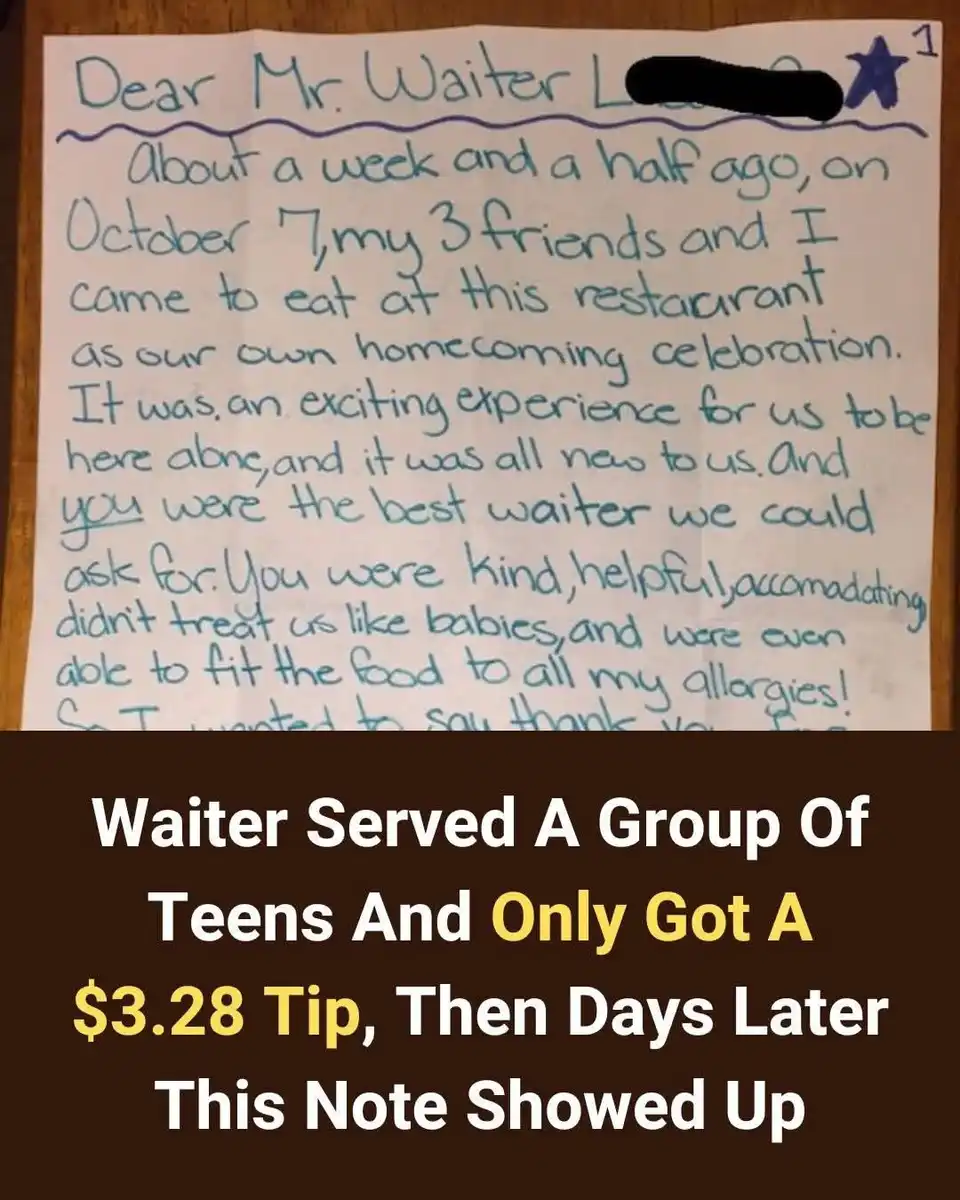 Dear Mr. Waiter L
1
About a week and a half ago, on
October 7, my 3 friends and I
came to eat at this restaurant
as our own homecoming celebration.
It was an exciting experience for us to be
here alone, and it was all new to us. And
you were the best waiter we could
ask for. You were kind, helpful, accomadating,
didn't treat us like babies, and were even
able to fit the food to all my allergies!
So I wanted to say thank you for
Waiter Served A Group Of
Teens And Only Got A
$3.28 Tip, Then Days Later
This Note Showed Up